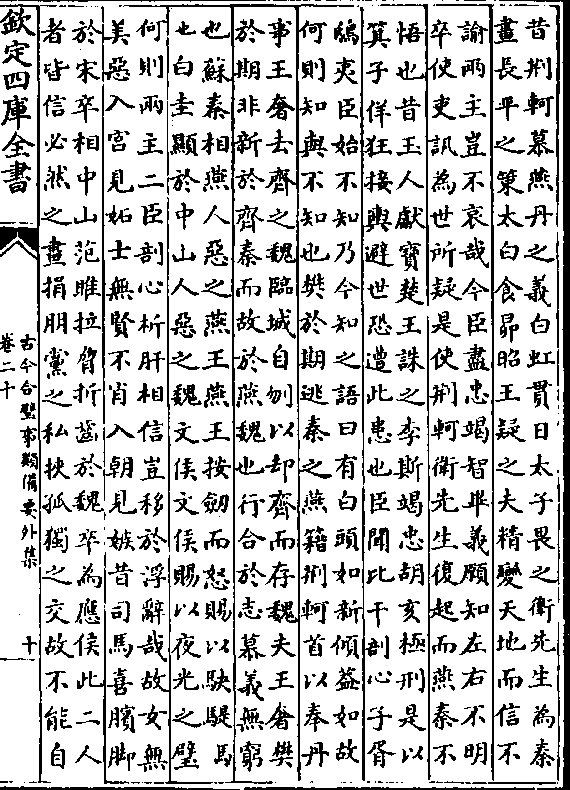 昔荆軻慕燕丹之義白虹貫日太子畏之衛先生為秦
畫長平之策太白食昴昭王疑之夫精變天地而信不
諭兩主豈不哀哉今臣盡忠竭智畢義願知左右不明
卒使吏訊為世所疑是使荆軻衛先生復起而燕秦不
悟也昔玉人獻寶楚王誅之李斯竭忠胡亥極刑是以
箕子佯狂接輿避世恐遭此患也臣聞比干剖心子胥
鴟夷臣始不知乃今知之語曰有白頭如新傾蓋如故
何則知與不知也樊於期逃秦之燕籍荆軻首以奉丹
事王奢去齊之魏臨城自刎以却齊而存魏夫王奢樊
於期非新於齊秦而故於燕魏也行合於志慕義無窮
也蘇秦相燕人惡之燕王燕王按劒而怒賜以駃騠馬
也白圭顯於中山人惡之魏文侯文侯賜以夜光之璧
何則兩主二臣剖心析肝相信豈移於浮辭哉故女無
美惡入宮見妬士無賢不肖入朝見嫉昔司馬喜臏脚
於宋卒相中山范睢拉脅折齒於魏卒為應侯此二人
者皆信必然之畫捐朋黨之私挾孤獨之交故不能自
欽定四庫全書
古今合璧事類備要外集
卷二十
十